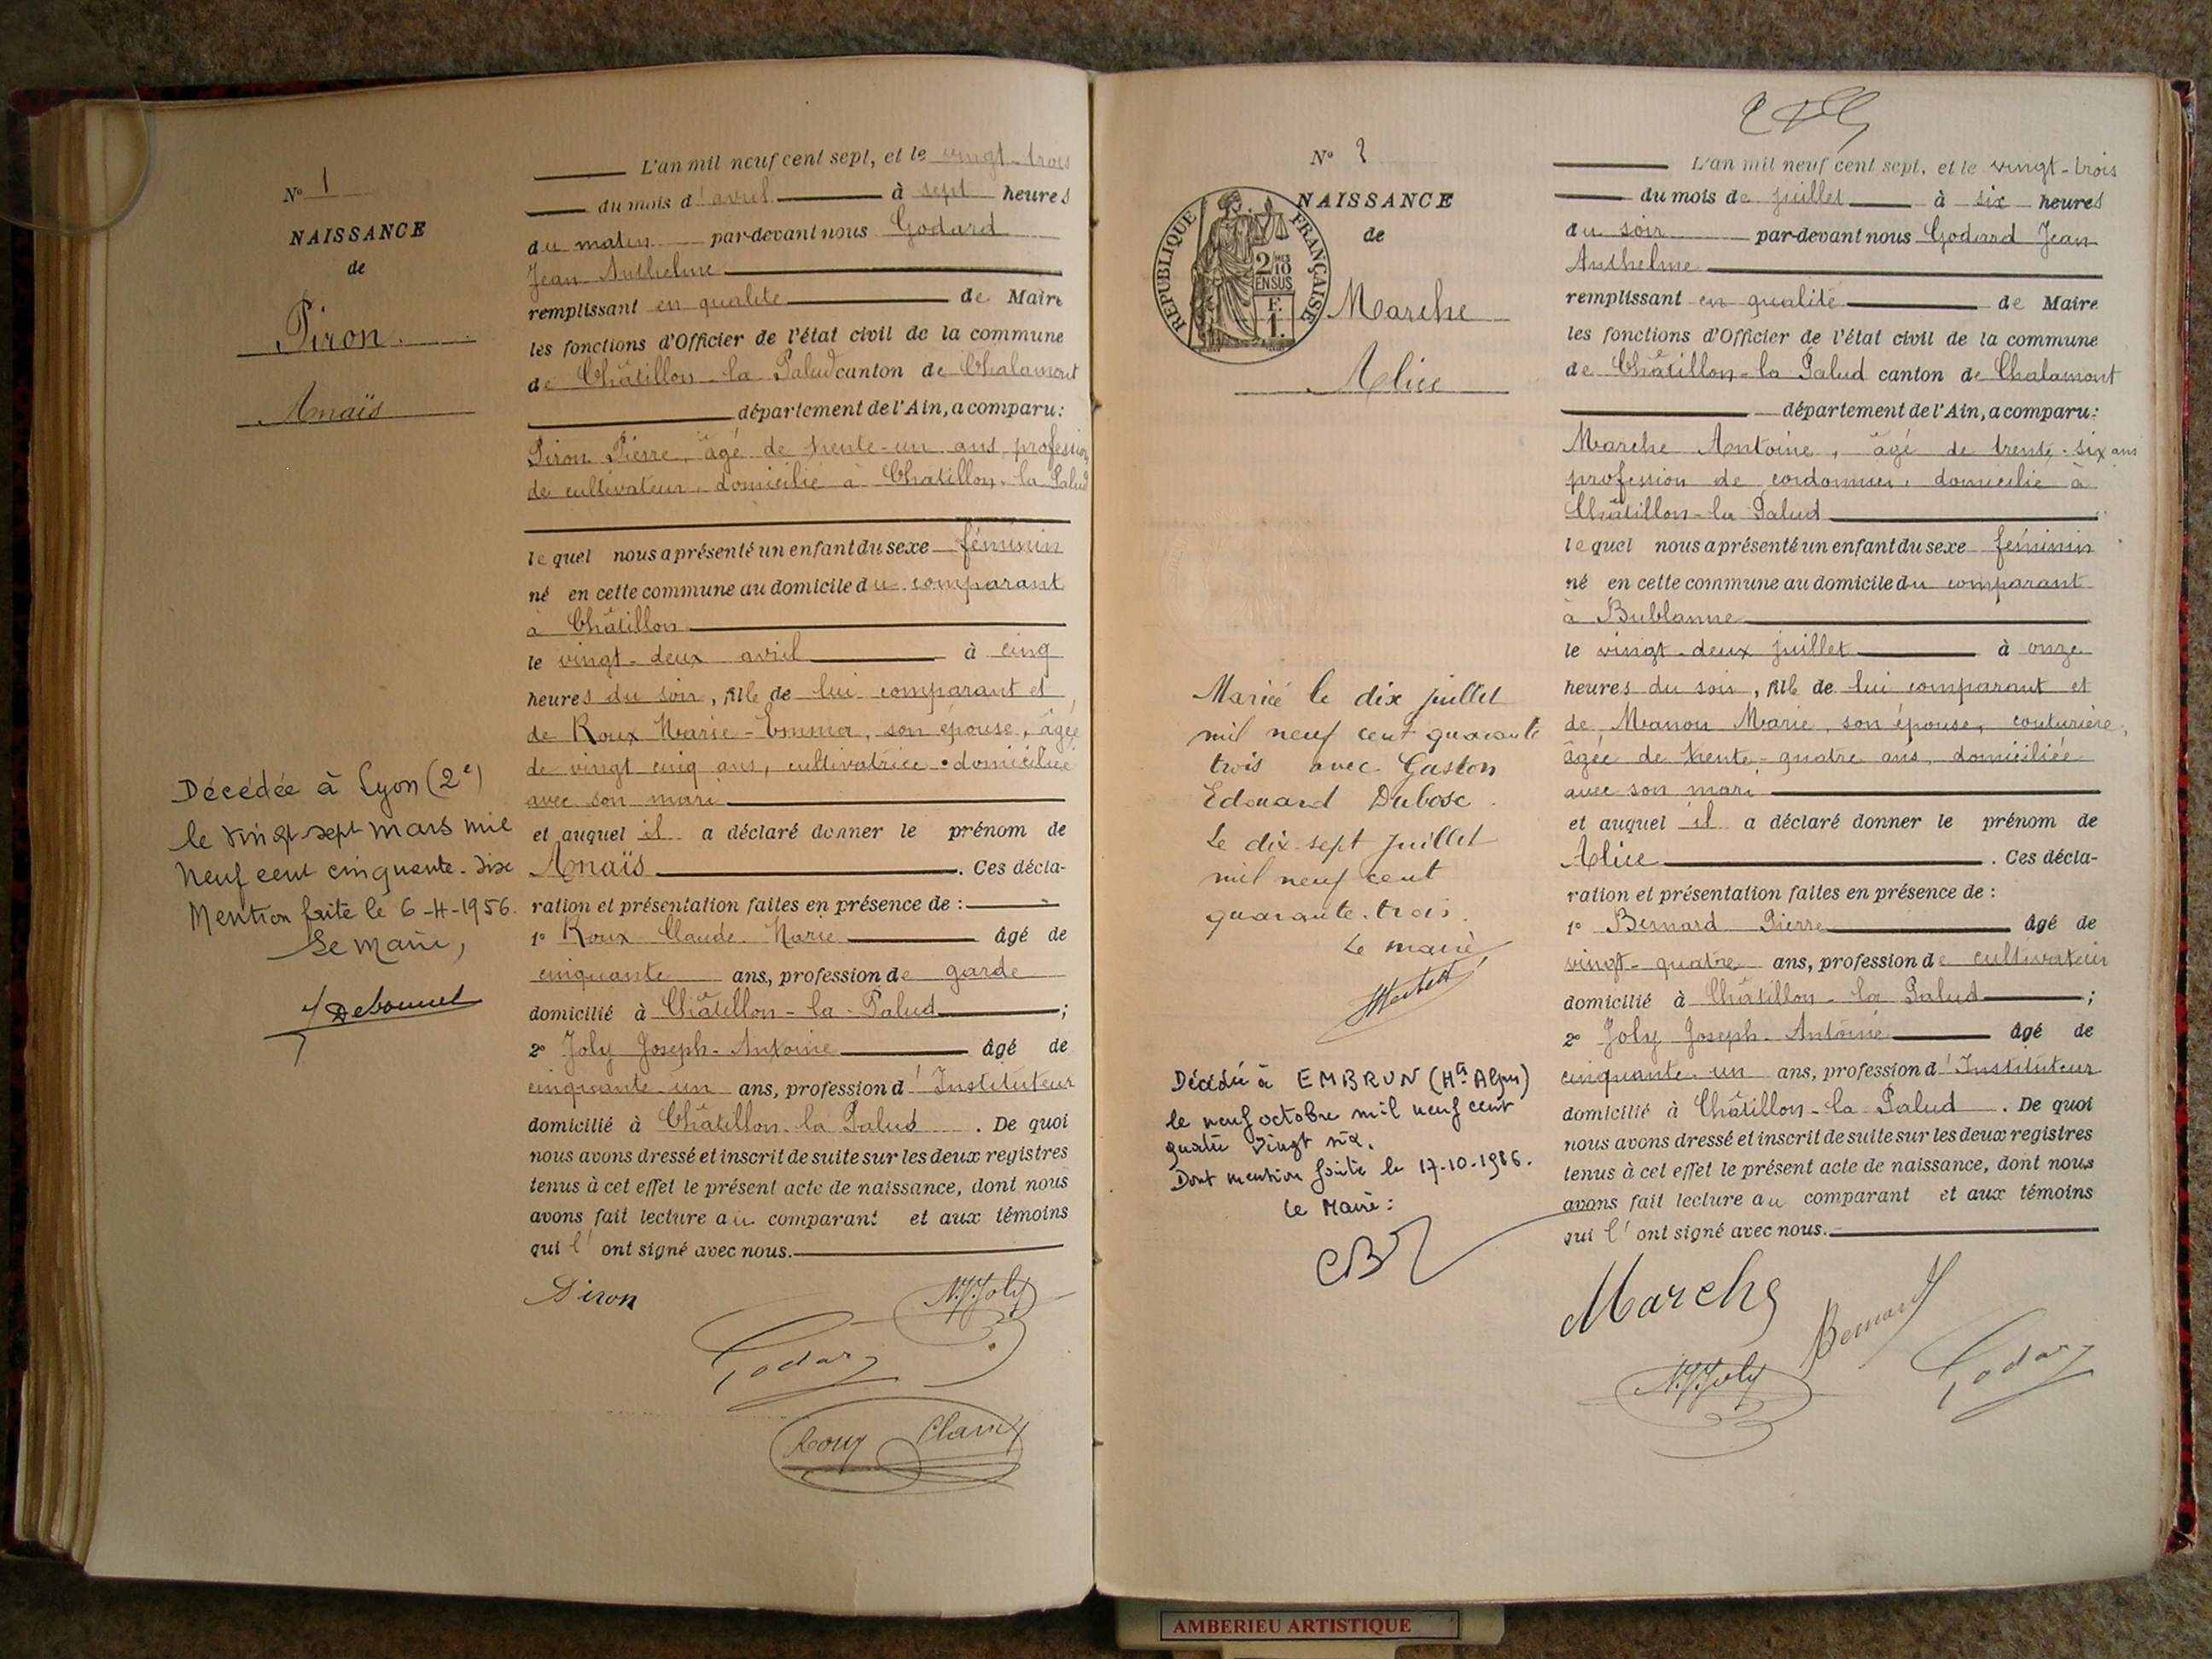 N° 1
NAISSANCE
de
Piron
Anaïs
Décédée à Lyon (2e)
le vingt sept mars mil
neuf cent cinquante-six
Mention faite le 6-4-1956.
Le Maire,
L'an mil neuf cent sept, et le vingt-trois
du mois d'avril à sept heures
du matin par-devant nous Godard
Jean Anthelme
remplissant en qualité de Maire
les fonctions d'Officier de l'état civil de la commune
de Châtillon-la Palud canton de Chalamont
département de l'Ain, a comparu:
Piron Pierre, âgé de trente-un ans, profession
de cultivateur, domicilié à Châtillon-la Palud
lequel nous a présenté un enfant du sexe féminin
né en cette commune au domicile du comparant
à Châtillon
le vingt-deux avril à cinq
heures du soir, fille de lui comparant et
de Roux Marie-Emma, son épouse, âgée
de vingt cinq ans, cultivatrice domiciliée
avec son mari
et auquel il a déclaré donner le prénom de
Anaïs. Ces décla-
ration et présentation faites en présence de :
1° Roux Claude-Marie âgé de
cinquante ans, profession de garde
domicilié à Châtillon-la-Palud ;
2° Joly Joseph-Antoine âgé de
cinquante-un ans, profession d'Instituteur
domicilié à Châtillon-la Palud. De quoi
nous avons dressé et inscrit de suite sur les deux registres
tenus à cet effet le présent acte de naissance, dont nous
avons fait lecture au comparant et aux témoins
qui l'ont signé avec nous.
Piron
Joly
Godard
Roux Claude
N° 2
NAISSANCE
de
REPUBLIQUE FRANÇAISE
2/10 MES
EN SUS
F.
1.
Marche
Alice
Mariée le dix juillet
mil neuf cent quarante
trois avec Gaston
Edouard Dubosc.
Le dix-sept juillet
mil neuf cent
quarante-trois.
Le maire
Décédée à EMBRUN (Htes Alpes)
le neuf octobre mil neuf cent
quatre vingt six.
Dont mention faite le 17-10-1986.
Le Maire:
L'an mil neuf cent sept, et le vingt-trois
du mois de juillet à six heures
du soir par-devant nous Godard Jean
Anthelme
remplissant en qualité de Maire
les fonctions d'Officier de l'état civil de la commune
de Châtillon-la Palud canton de Chalamont
département de l'Ain, a comparu:
Marche Antoine, âgé de trente-six ans
profession de cordonnier, domicilié à
Châtillon-la Palud
lequel nous a présenté un enfant du sexe féminin
né en cette commune au domicile du comparant
à Bublanne
le vingt-deux juillet à onze
heures du soir, fille de lui comparant et
de Manou Marie, son épouse, couturière,
âgée de trente-quatre ans, domiciliée
avec son mari
et auquel il a déclaré donner le prénom de
Alice. Ces décla-
ration et présentation faites en présence de :
1° Bernard Pierre âgé de
vingt-quatre ans, profession de cultivateur
domicilié à Châtillon-la Palud ;
2° Joly Joseph-Antoine âgé de
cinquante-un ans, profession d'Instituteur
domicilié à Châtillon-la Palud. De quoi
nous avons dressé et inscrit de suite sur les deux registres
tenus à cet effet le présent acte de naissance, dont nous
avons fait lecture au comparant et aux témoins
qui l'ont signé avec nous.
Marche
Bernard
Joly
Godard
AMBERIEU ARTISTIQUE